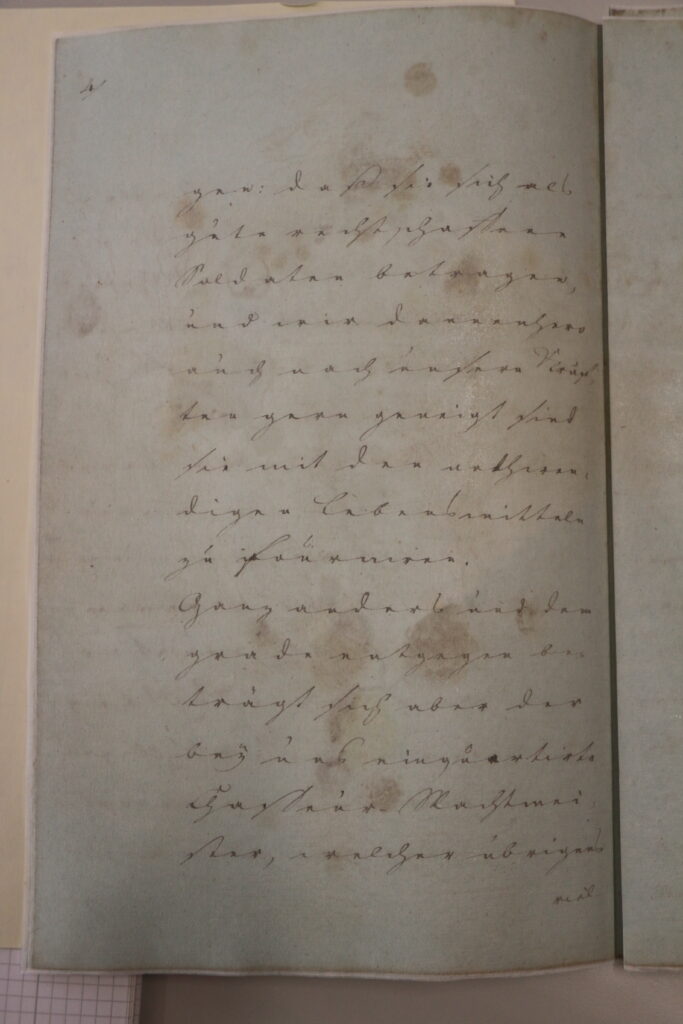 gen: daß sie sich als
gute rechtschaffene
Soldaten betragen,
und wir dannenhero
auch nach unsern Kräf-
ten gern geneigt sind
sie mit den nothwen-
digen Lebensmitteln
zu fourniren.
Ganz anders und dem
grade entgegen be-
trägt sich aber der
bey uns einquartirte
Chasseur-Wachtmei-
ster, welcher übrigens
viel